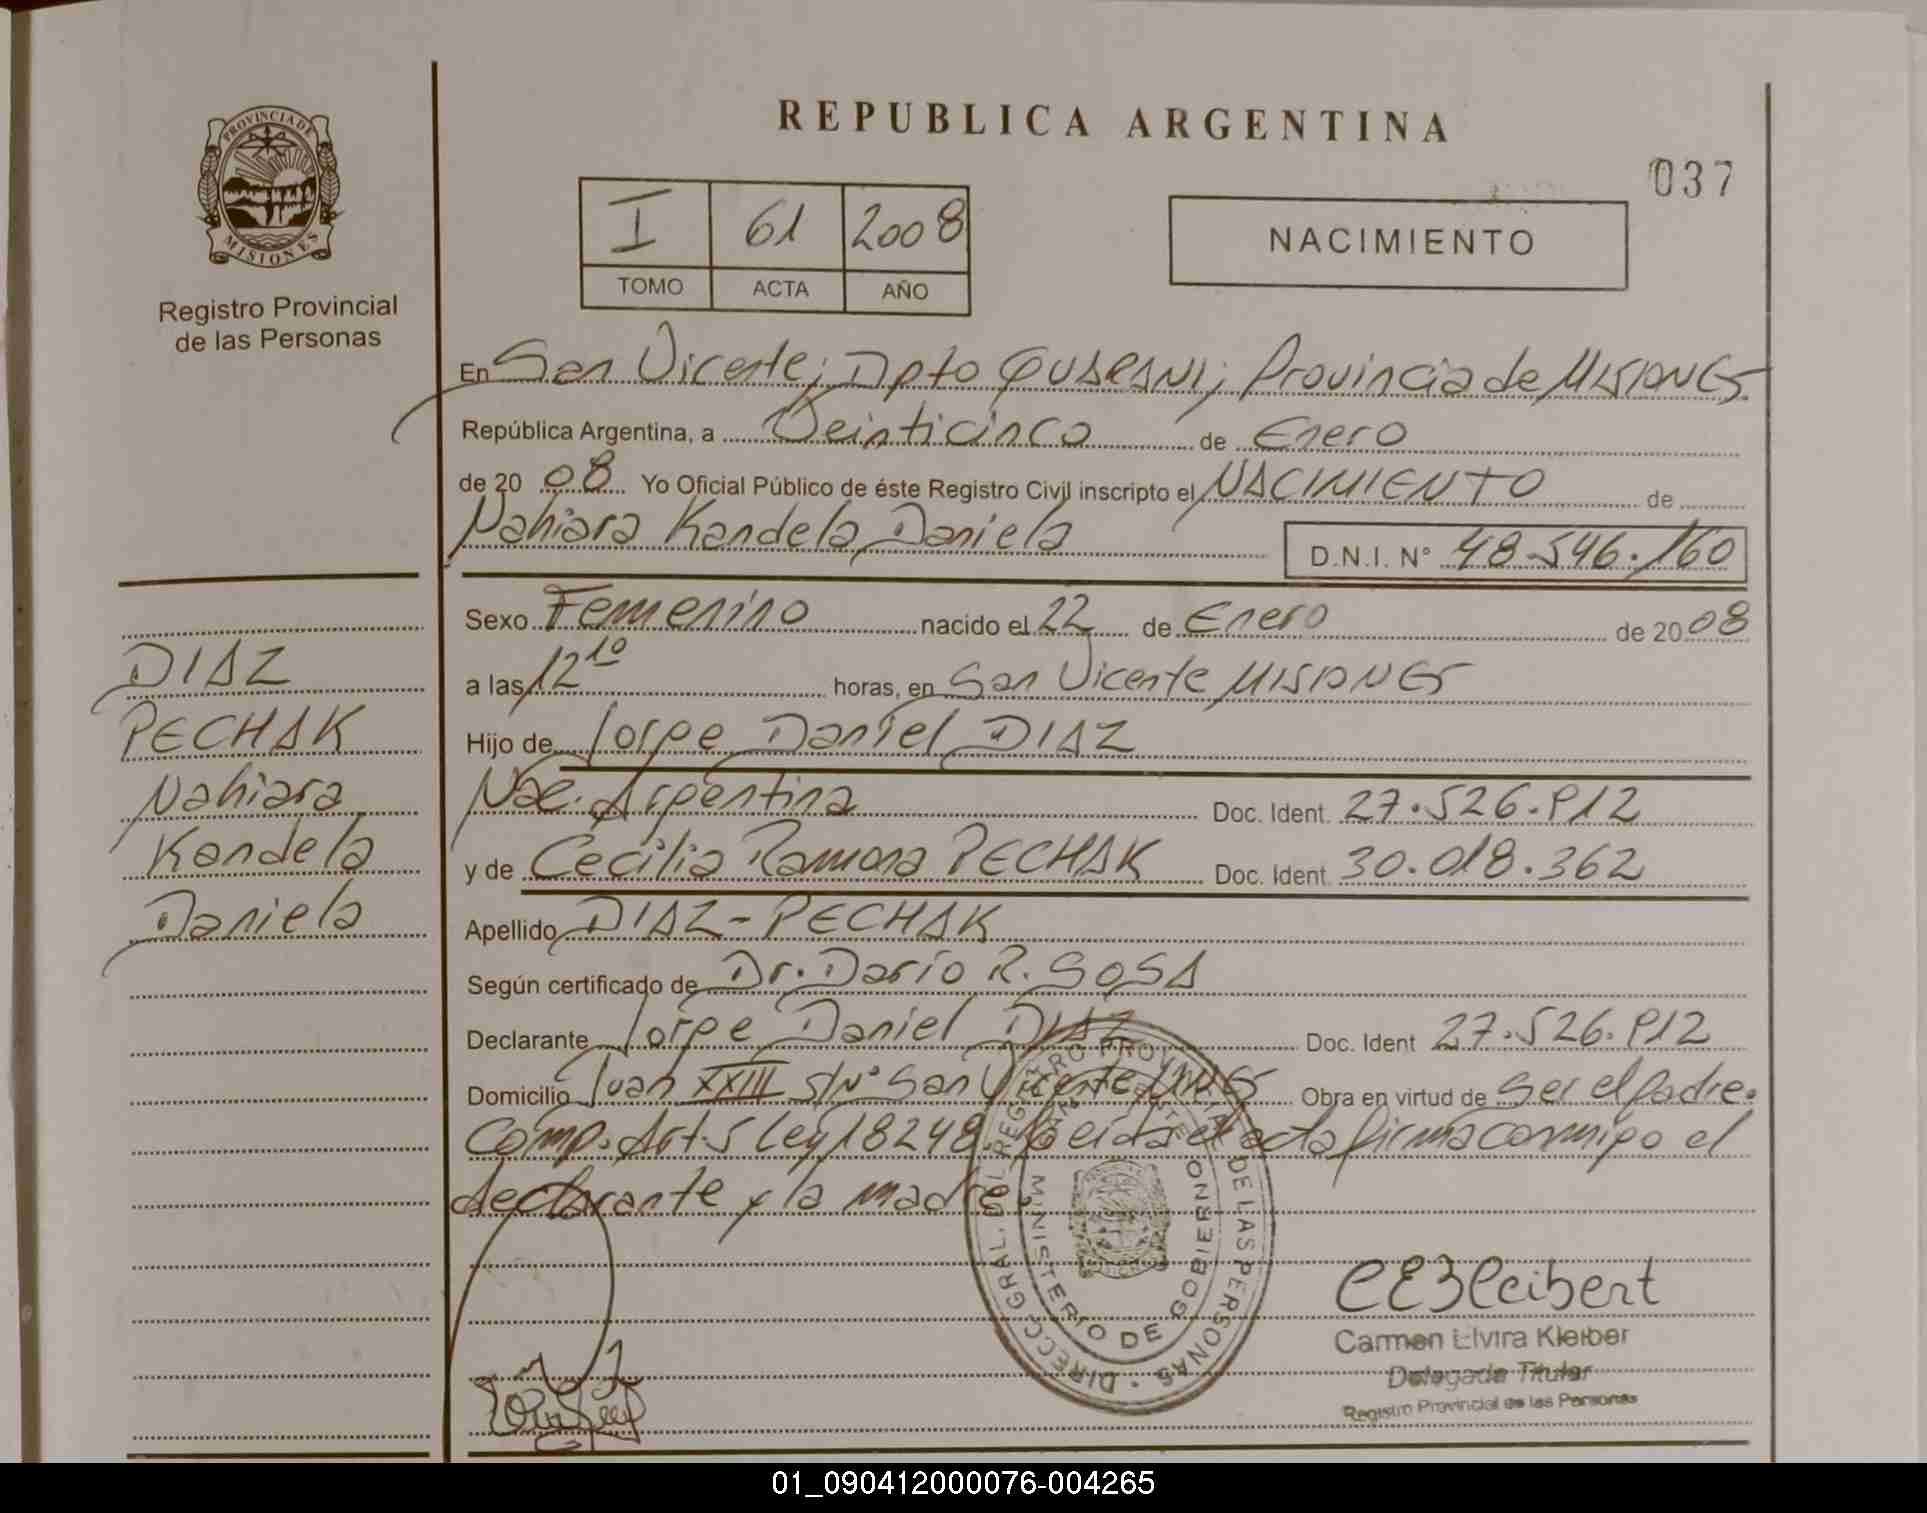 REPUBLICA ARGENTINA
037
PROVINCIA DE MISIONES
Registro Provincial
de las Personas
I 61 2008
TOMO ACTA AÑO
NACIMIENTO
En San Vicente; Dpto GUARANI; Provincia de MISIONES
República Argentina, a Veinticinco de Enero
de 20 08 Yo Oficial Público de éste Registro Civil inscripto el NACIMIENTO de
Nahiara Kandela Daniela D.N.I. N° 48.546.160
Sexo Femenino nacido el 22 de Enero de 20 08
a las 12 10 horas, en San Vicente MISIONES
Hijo de Jorge Daniel DIAZ
Nac. Argentina Doc. Ident. 27.526.912
y de Cecilia Ramona PECHAK Doc. Ident. 30.018.362
Apellido DIAZ-PECHAK
Según certificado de Dr. Darío R. SOSA
Declarante Jorge Daniel DIAZ Doc. Ident 27.526.912
Domicilio Juan XXIII S/N° San Vicente Obra en virtud de ser el padre.
Comp. Art. 5 Ley 18248 Leida el acta firma conmigo el
declarante y la madre.
DIAZ
PECHAK
Nahiara
Kandela
Daniela
DIRECC. GRAL. DEL REGISTRO PROVINCIAL DE LAS PERSONAS
MINISTERIO DE GOBIERNO
Carmen Elvira Kleiber
Delegada Titular
Registro Provincial de las Personas
01_090412000076-004265